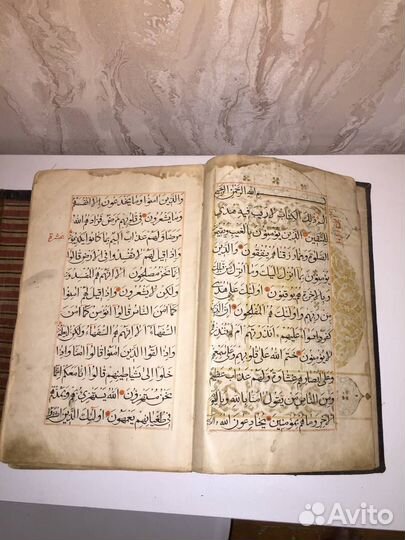 بسم الله الرحمن الرحيم
الم ذلك الكتاب لا ريب فيه هدى
للمتقين الذين يؤمنون بالغيب ويقيمون
الصلوة ومما رزقناهم ينفقون والذين
يؤمنون بما انزل اليك وما انزل من قبلك
وبالاخرة هم يوقنون اولئك على هدى
من ربهم واولئك هم المفلحون ان الذين
كفروا سواء عليهم ءانذرتهم ام لم تنذرهم
لا يؤمنون ختم الله على قلوبهم وعلى سمعهم
وعلى ابصارهم غشاوة ولهم عذاب عظيم
ومن الناس من يقول امنا بالله وباليوم
الاخر وما هم بمؤمنين يخادعون الله
والذين امنوا وما يخدعون الا انفسهم
وما يشعرون في قلوبهم مرض فزادهم الله
مرضا ولهم عذاب اليم بما كانوا يكذبون
واذا قيل لهم لا تفسدوا في الارض قالوا
انما نحن مصلحون الا انهم هم المفسدون
ولكن لا يشعرون واذا قيل لهم امنوا
كما امن الناس قالوا انؤمن كما امن
السفهاء الا انهم هم السفهاء ولكن لا يعلمون
واذا لقوا الذين امنوا قالوا امنا واذا
خلوا الى شياطينهم قالوا انا معكم انما
نحن مستهزؤن الله يستهزئ بهم ويمدهم
في طغيانهم يعمهون اولئك الذين اشتروا
Avito